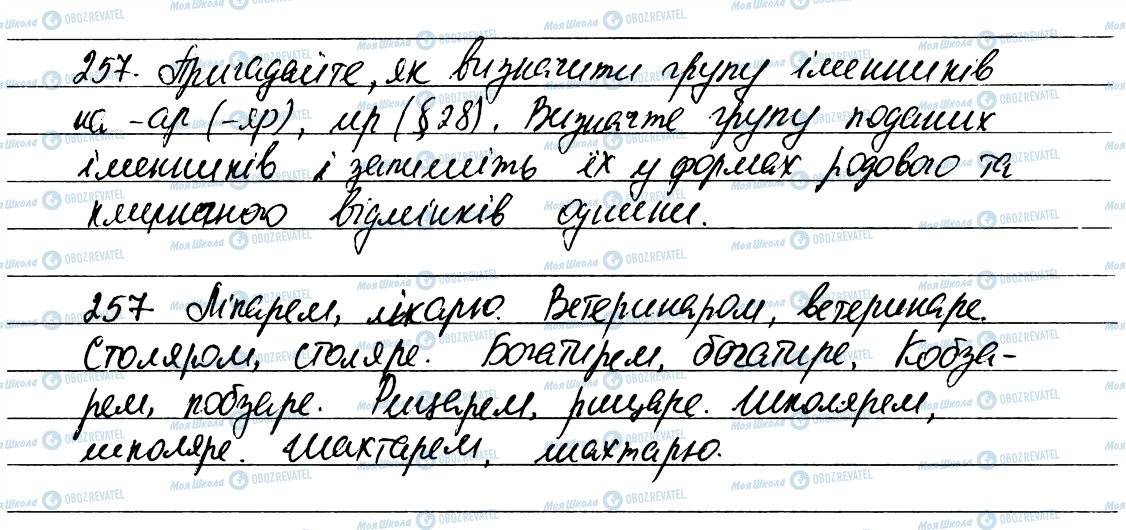 257. Пригадайте, як визначити групу іменників
на -ар (-яр), ир (§28). Визначте групу поданих
іменників і запишіть їх у формах родового та
кличного відмінків однини.
257 Лікарем, лікарю. Ветеринаром, ветеринаре.
Столяром, столяре. Богатирем, богатире. Кобза-
рем, кобзаре. Рицарем, рицаре. Школярем,
школяре. Шахтарем, шахтарю.